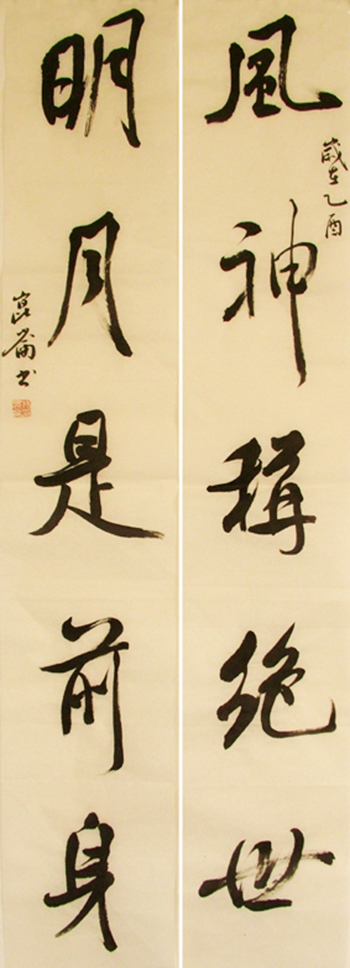 風神稱絕世
歲在乙酉
明月是前身
崑崙書